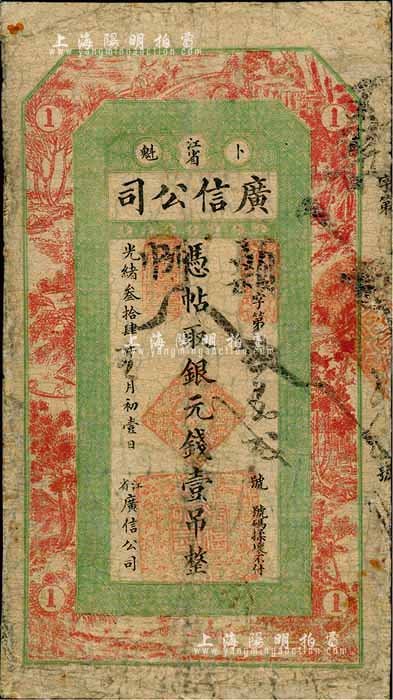 上海陽明拍賣
www.yangmingauction.com
1 1
卜 江省 魁
廣信公司
字第
號
字第 號 號碼揉壞不付
憑帖取銀元錢壹吊整
光緒叁拾肆年 月初壹日
江省 廣信公司
上海陽明拍賣
www.yangmingauction.com
1 1
上海陽明拍賣
www.yangmingauction.com